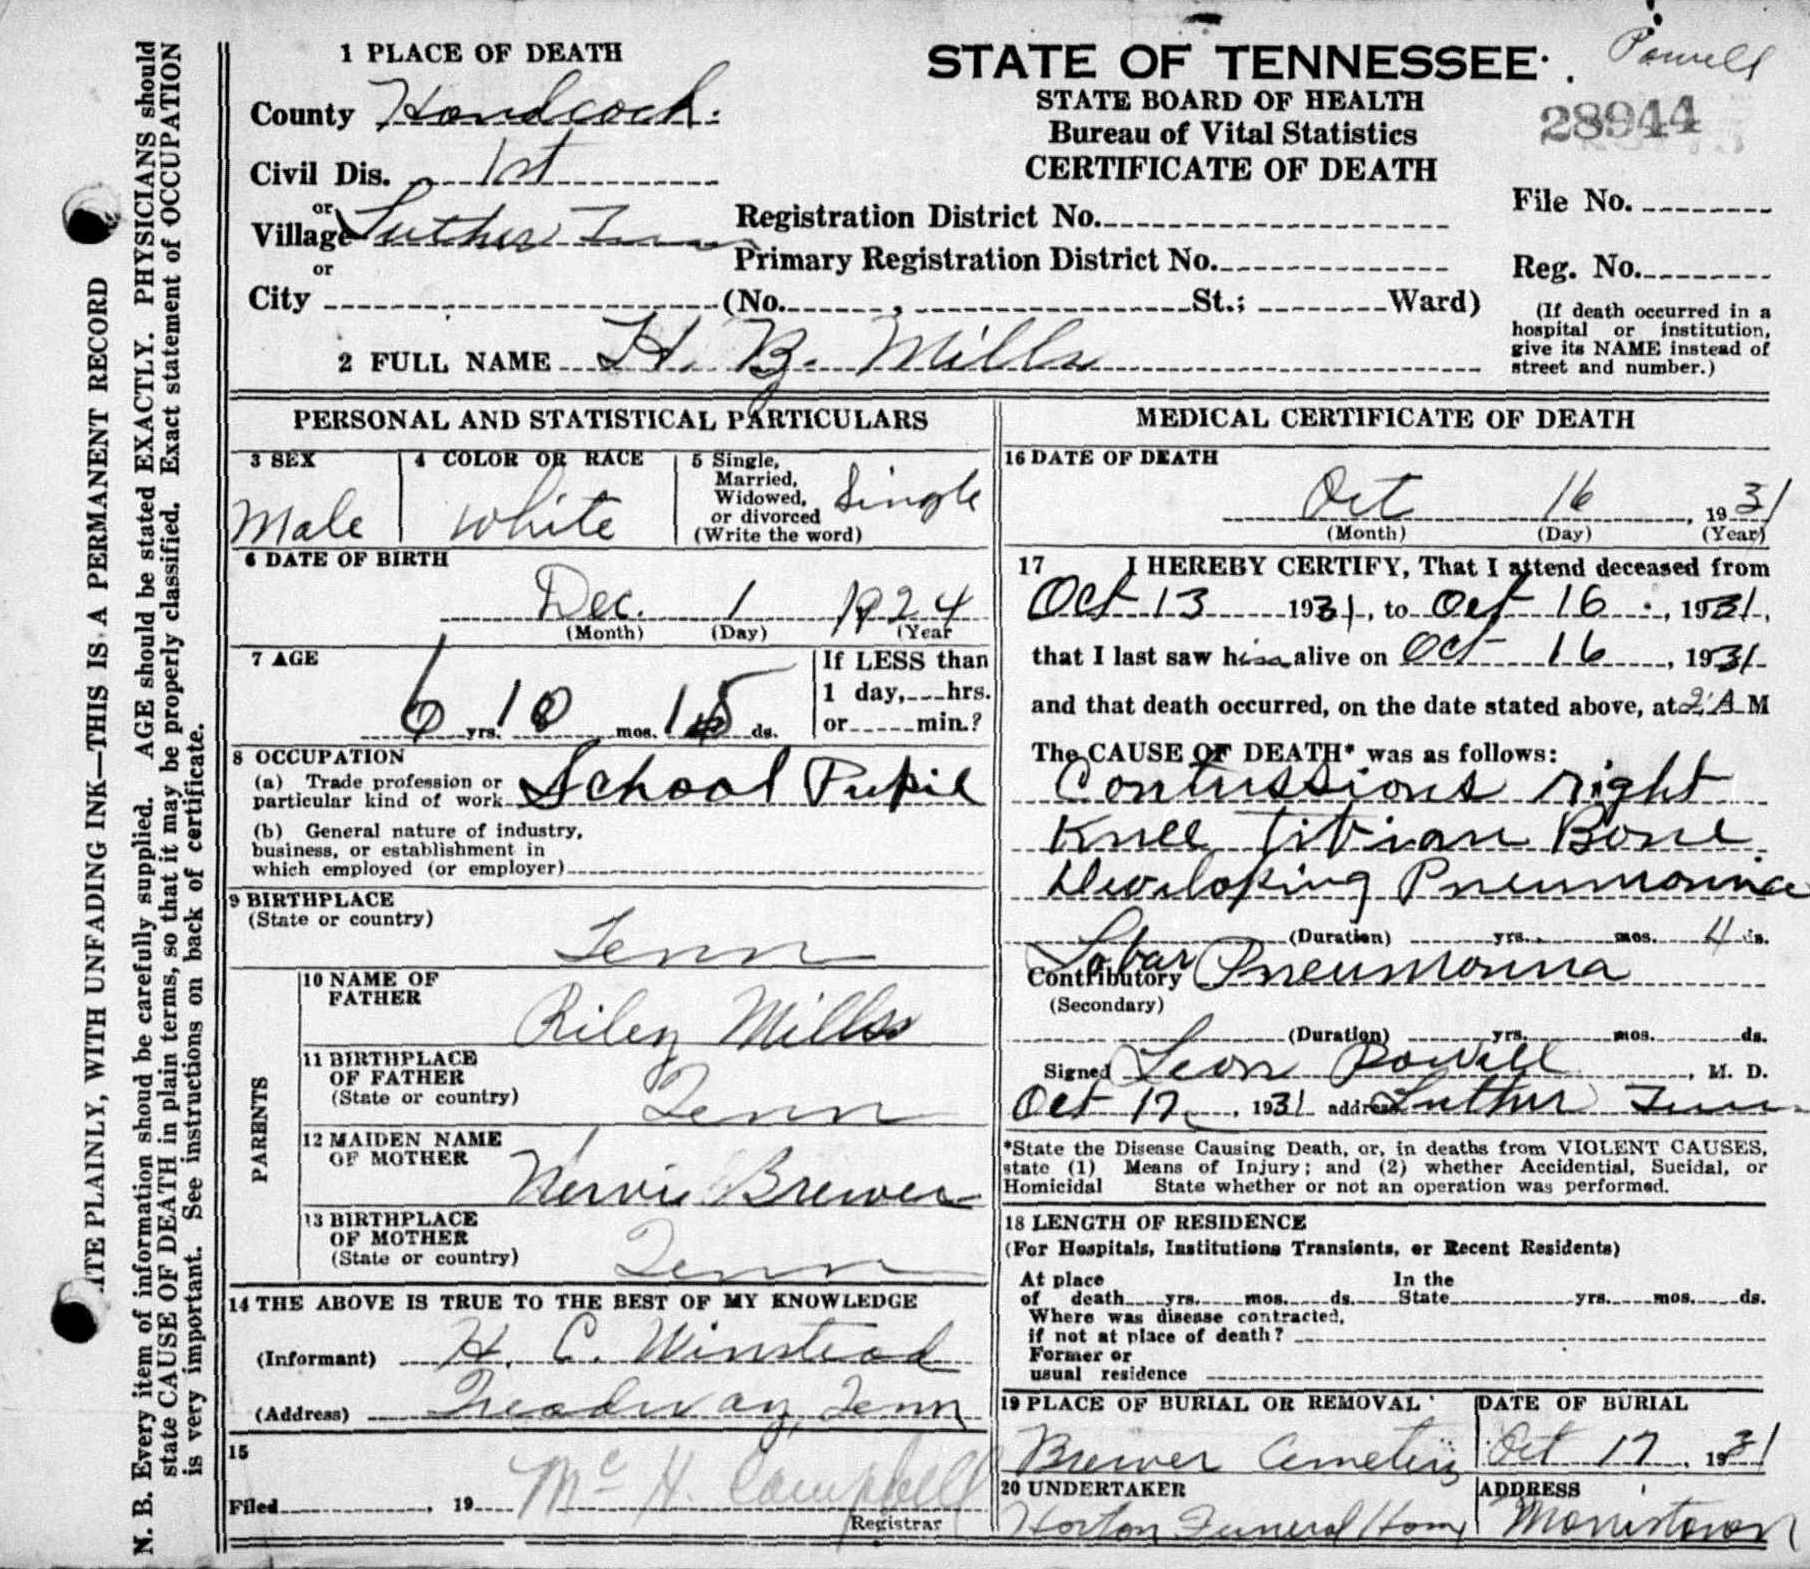 Powell
28944
1 PLACE OF DEATH
County Handcock.
Civil Dis. 1st
or
Village Luther Tenn
or
City (No. , St.; Ward)
STATE OF TENNESSEE
STATE BOARD OF HEALTH
Bureau of Vital Statistics
CERTIFICATE OF DEATH
Registration District No.
Primary Registration District No.
File No.
Reg. No.
(If death occurred in a
hospital or institution,
give its NAME instead of
street and number.)
2 FULL NAME H. B. Mills
PERSONAL AND STATISTICAL PARTICULARS
3 SEX
Male
4 COLOR OR RACE
White
5 Single,
Married,
Widowed,
or divorced
(Write the word)
Single
6 DATE OF BIRTH
Dec. 1 1924
(Month) (Day) (Year
7 AGE
6 yrs. 10 mos. 15 ds.
If LESS than
1 day, hrs.
or min.?
8 OCCUPATION
(a) Trade profession or
particular kind of work School Pupil
(b) General nature of industry,
business, or establishment in
which employed (or employer)
9 BIRTHPLACE
(State or country)
Tenn
PARENTS
10 NAME OF
FATHER
Riley Mills
11 BIRTHPLACE
OF FATHER
(State or country)
Tenn
12 MAIDEN NAME
OF MOTHER
Nervie Brewer
13 BIRTHPLACE
OF MOTHER
(State or country)
Tenn
14 THE ABOVE IS TRUE TO THE BEST OF MY KNOWLEDGE
(Informant) H. C. Winstead
(Address) Treadway, Tenn
15
Filed , 19 Mc H. Campbell
Registrar
MEDICAL CERTIFICATE OF DEATH
16 DATE OF DEATH
Oct 16 , 1931
(Month) (Day) (Year)
17 I HEREBY CERTIFY, That I attend deceased from
Oct 13 1931, to Oct 16 , 1931,
that I last saw him alive on Oct 16 , 1931
and that death occurred, on the date stated above, at 2 A M
The CAUSE OF DEATH* was as follows:
Contussions right
Knee Tibian Bone
Developing Pneumonna
(Duration) yrs. mos. 4 ds.
Lobar Pneumonna
Contributory
(Secondary)
(Duration) yrs. mos. ds.
Signed Leon Powell , M. D.
Oct 17 , 1931 address Luther Tenn
*State the Disease Causing Death, or, in deaths from VIOLENT CAUSES,
state (1) Means of Injury; and (2) whether Accidential, Sucidal, or
Homicidal State whether or not an operation was performed.
18 LENGTH OF RESIDENCE
(For Hospitals, Institutions Transients, or Recent Residents)
At place In the
of death yrs. mos. ds. State yrs. mos. ds.
Where was disease contracted,
if not at place of death?
Former or
usual residence
19 PLACE OF BURIAL OR REMOVAL
Brewer Cemetery
DATE OF BURIAL
Oct 17, 1931
20 UNDERTAKER
Horton Funeral Home
ADDRESS
Morristown
ITE PLAINLY, WITH UNFADING INK—THIS IS A PERMANENT RECORD
N. B. Every item of information shoud be carefully supplied. AGE should be stated EXACTLY. PHYSICIANS should
state CAUSE OF DEATH in plain terms, so that it may be properly classified. Exact statement of OCCUPATION
is very important. See instructions on back of certificate.